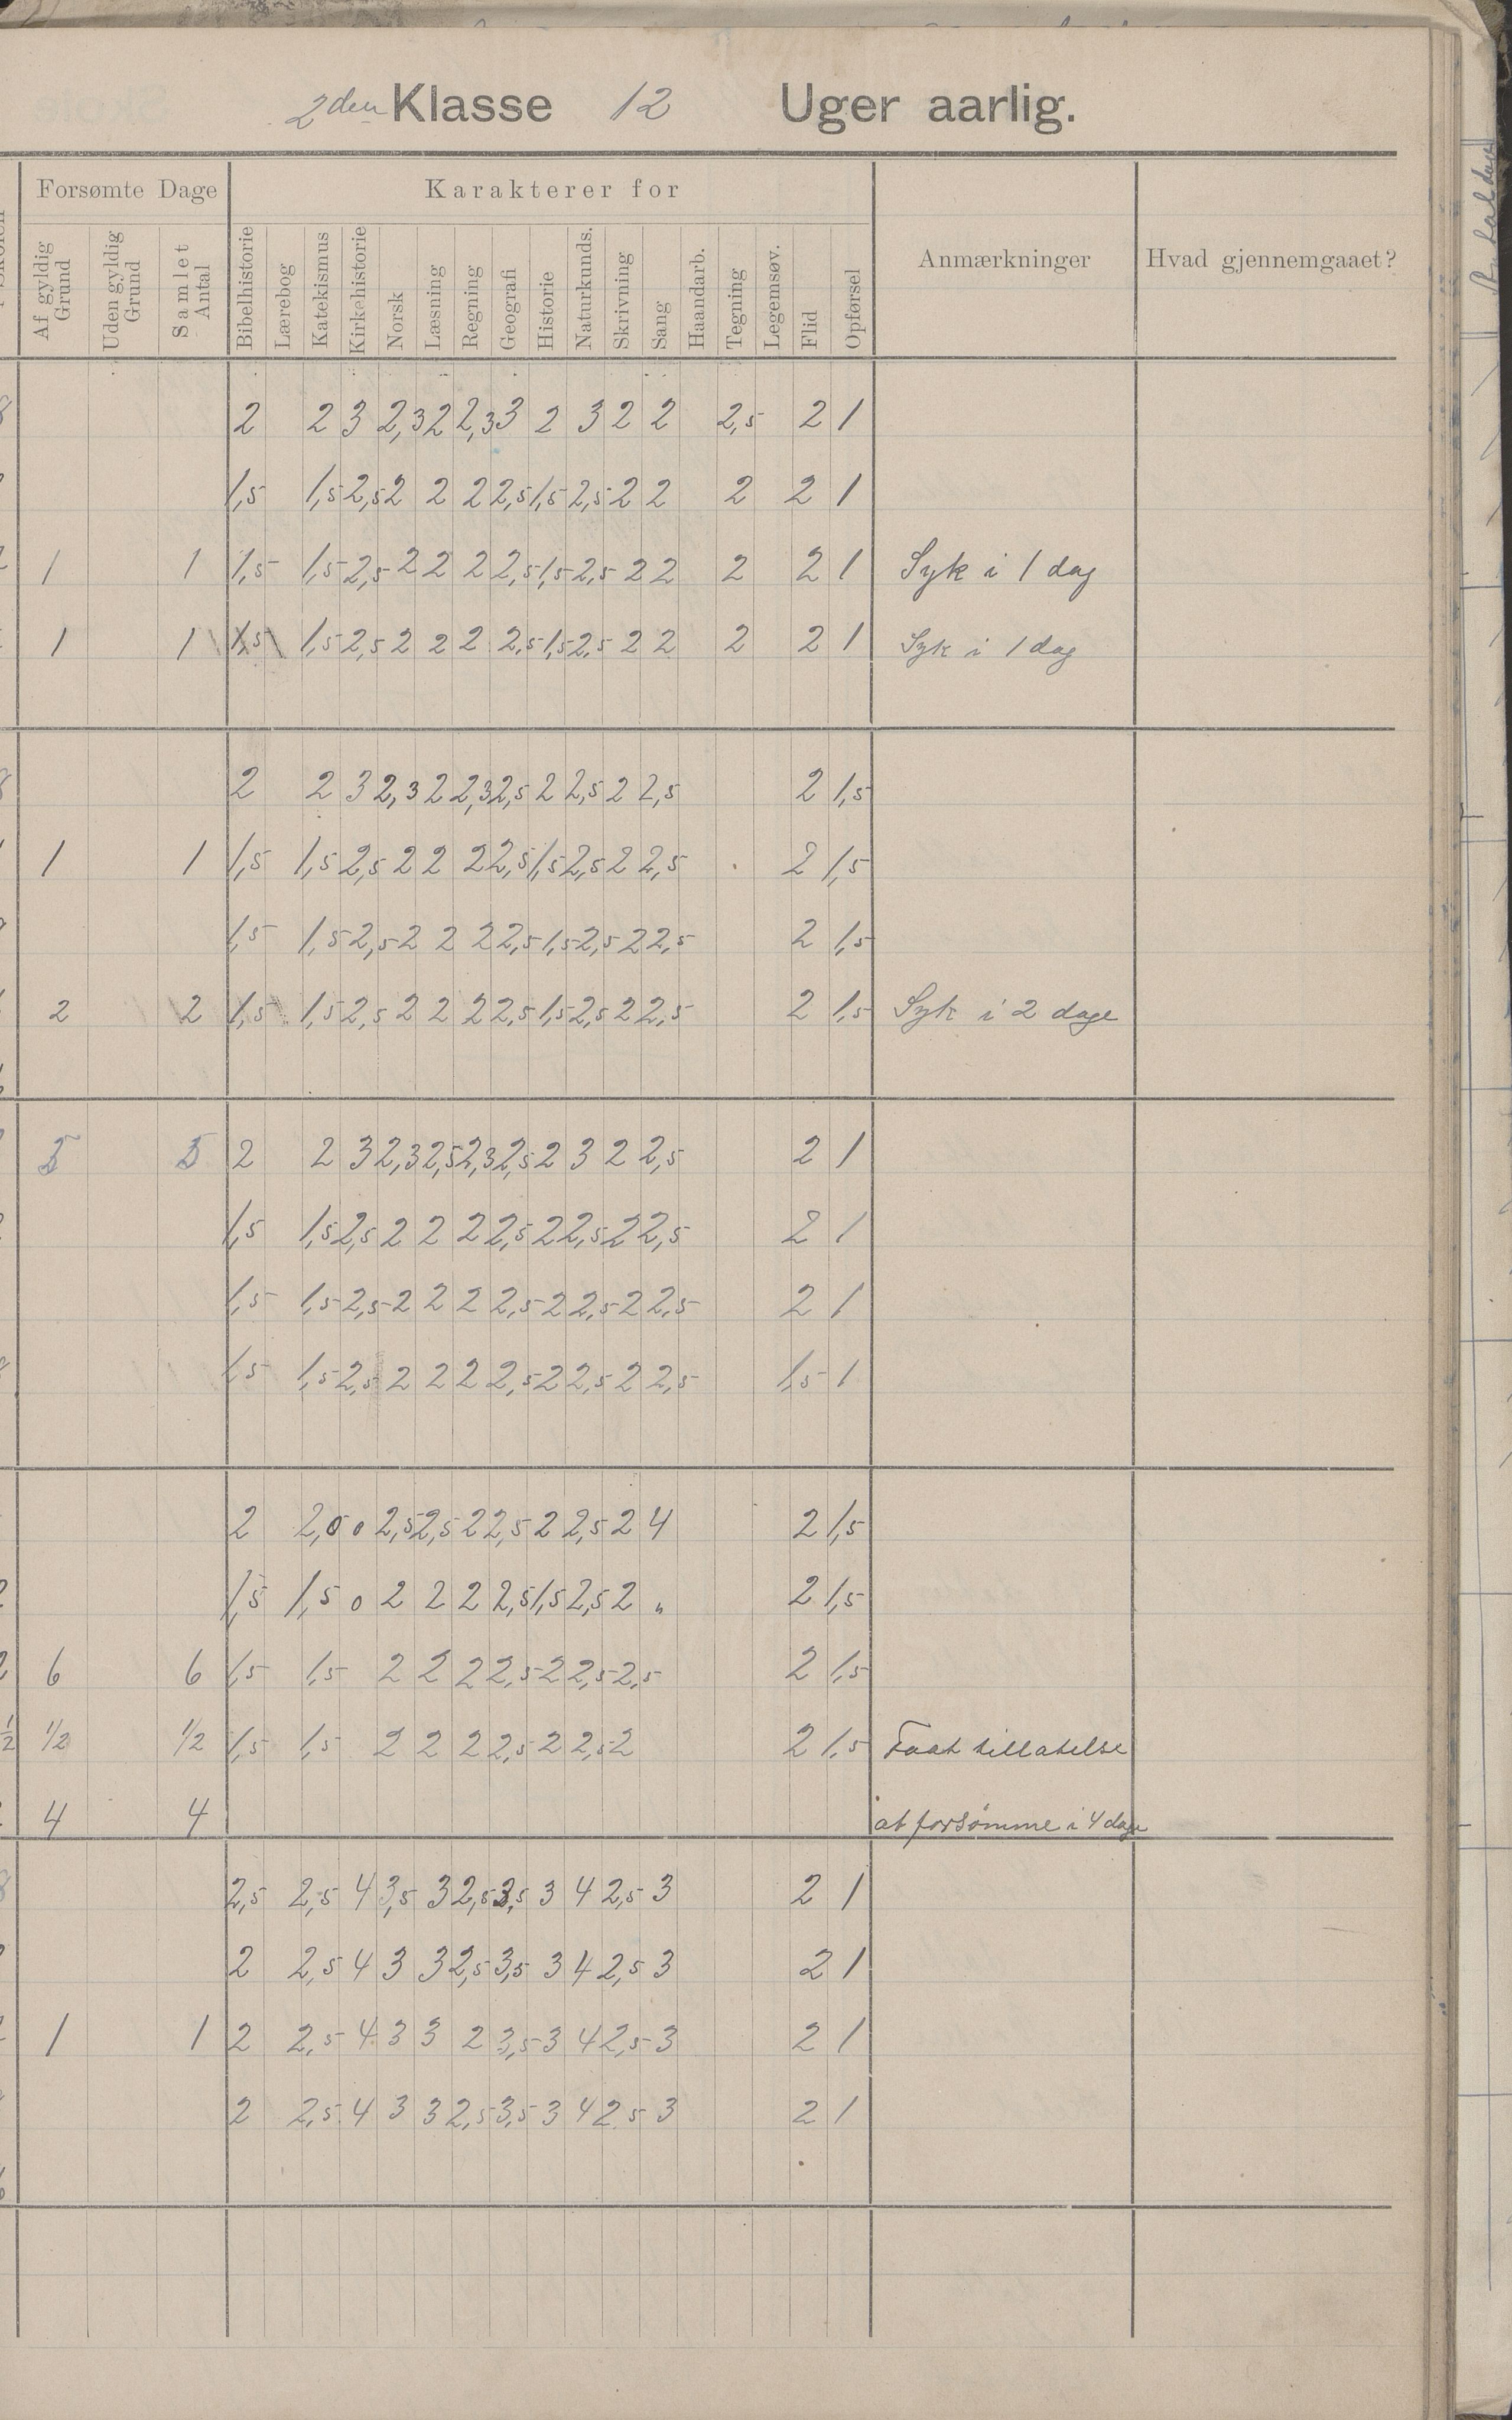 2den Klasse 12 Uger aarlig.
Forsømte Dage Karakterer for
Af gyldig Grund Uden gyldig Grund Samlet Antal Bibelhistorie Lærebog Katekismus Kirkehistorie Norsk Læsning Regning Geografi Historie Naturkunds. Skrivning Sang Haandarb. Tegning Legemsøv. Flid Opførsel Anmærkninger Hvad gjennemgaaet?
2 2 3 2,3 2 2,3 3 2 3 2 2 2,5 2 1
1,5 1,5 2,5 2 2 2 2,5 1,5 2,5 2 2 2 2 1
1 1 1,5 1,5 2,5 2 2 2 2,5 1,5 2,5 2 2 2 2 1 Syk i 1 dag
1 1 1,5 1,5 2,5 2 2 2 2,5 1,5 2,5 2 2 2 2 1 Syk i 1 dag
2 2 3 2,3 2 2,3 2,5 2 2,5 2 2,5 2 1,5
1 1 1,5 1,5 2,5 2 2 2 2,5 1,5 2,5 2 2,5 2 1,5
1,5 1,5 2,5 2 2 2 2,5 1,5 2,5 2 2,5 2 1,5
2 2 1,5 1,5 2,5 2 2 2 2,5 1,5 2,5 2 2,5 2 1,5 Syk i 2 dage
5 5 2 2 3 2,3 2,5 2,3 2,5 2 3 2 2,5 2 1
1,5 1,5 2,5 2 2 2 2,5 2 2,5 2 2,5 2 1
1,5 1,5 2,5 2 2 2 2,5 2 2,5 2 2,5 2 1
1,5 1,5 2,5 2 2 2 2,5 2 2,5 2 2,5 1,5 1
2 2,0 0 2,5 2,5 2 2,5 2 2,5 2 4 2 1,5
1,5 1,5 0 2 2 2 2,5 1,5 2,5 2 " 2 1,5
6 6 1,5 1,5 2 2 2 2,5 2 2,5 2,5 2 1,5
1/2 1/2 1/2 1,5 1,5 2 2 2 2,5 2 2,5 2 2 1,5 Faat tillatelse
4 4 at forsømme i 4 dage
2,5 2,5 4 3,5 3 2,5 3,5 3 4 2,5 3 2 1
2 2,5 4 3 3 2,5 3,5 3 4 2,5 3 2 1
1 1 2 2,5 4 3 3 2 3,5 3 4 2,5 3 2 1
2 2,5 4 3 3 2,5 3,5 3 4 2,5 3 2 1